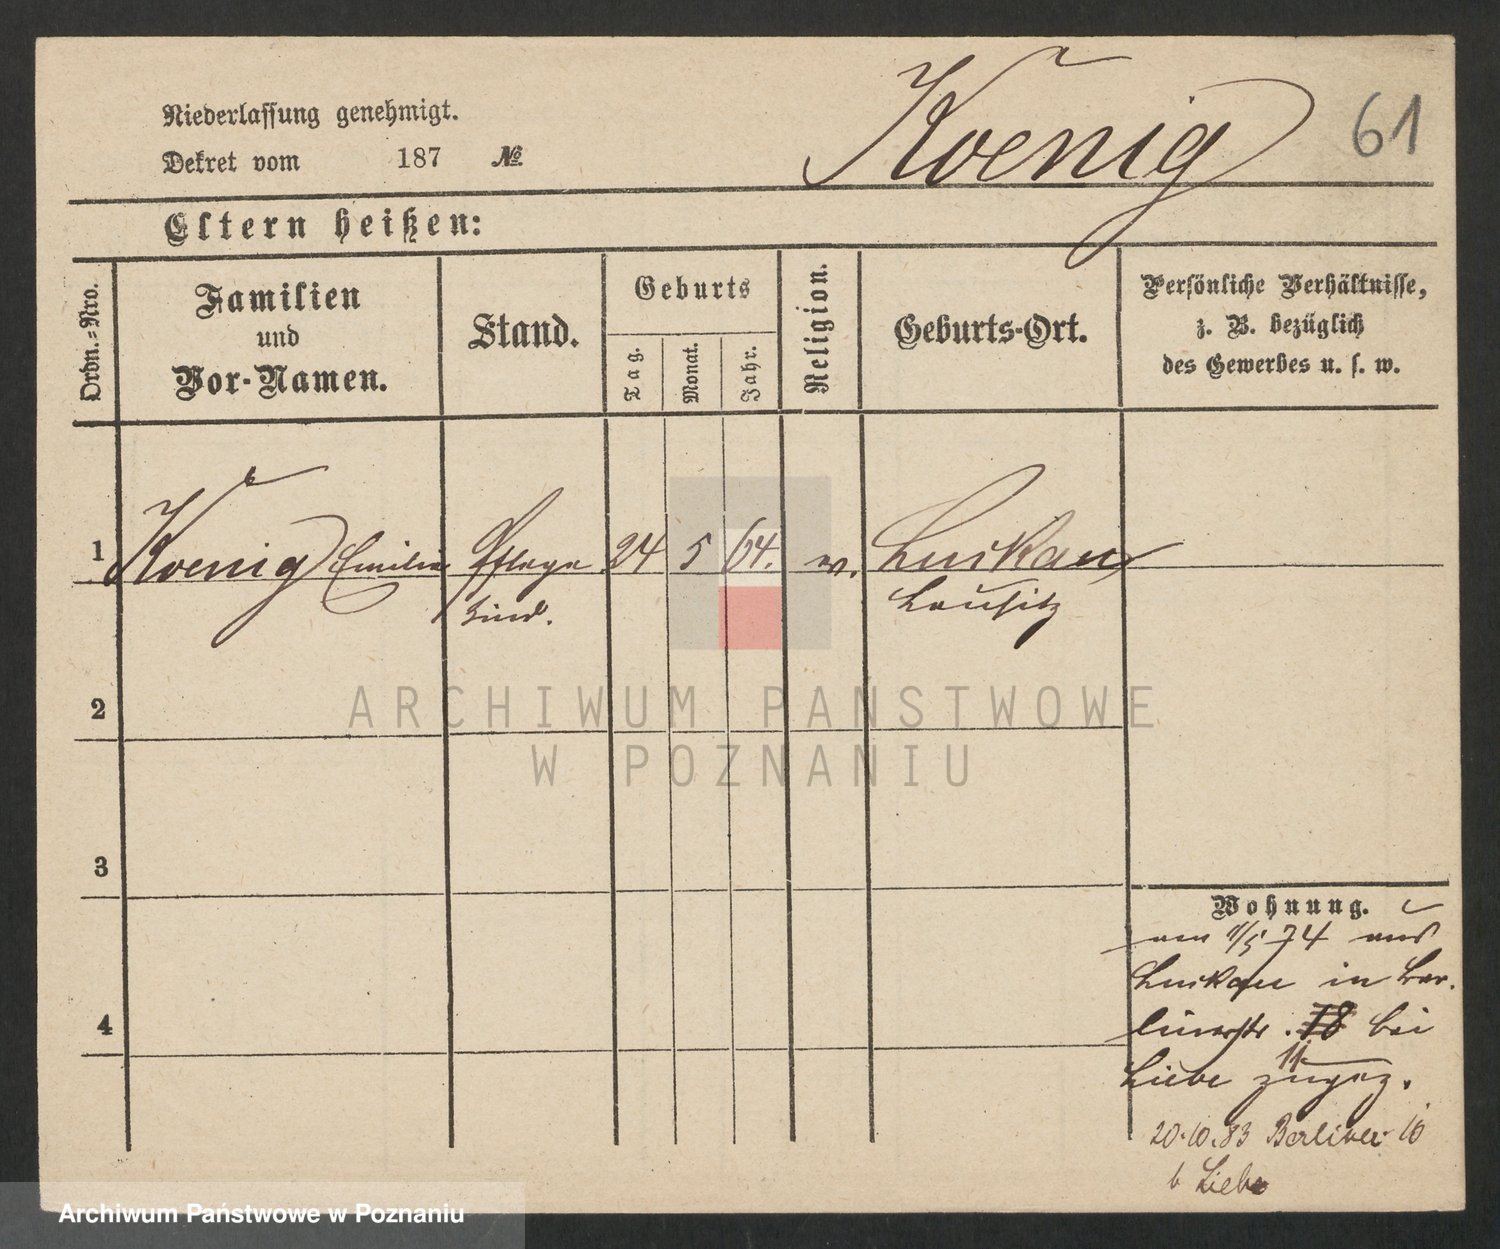 Niederlassung genehmigt.
Dekret vom 187 №
Koenig
61
Eltern heißen:
Ordn.=Nro.
Familien
und
Vor-Namen.
Stand.
Geburts
Tag.
Monat.
Jahr.
Religion.
Geburts-Ort.
Persönliche Verhältnisse,
z. B. bezüglich
des Gewerbes u. s. w.
1 Koenig Emilie Pflege 24 5 64. ev. Luckau
kind. Lausitz
2
ARCHIWUM PAŃSTWOWE
W POZNANIU
3
Wohnung.
am 1/5 74 aus
Luckau in Ber.
linerstr. 18 bei
11
Liebe zugez.
4
20.10.83 Berliner 10
b Liebe
Archiwum Państwowe w Poznaniu